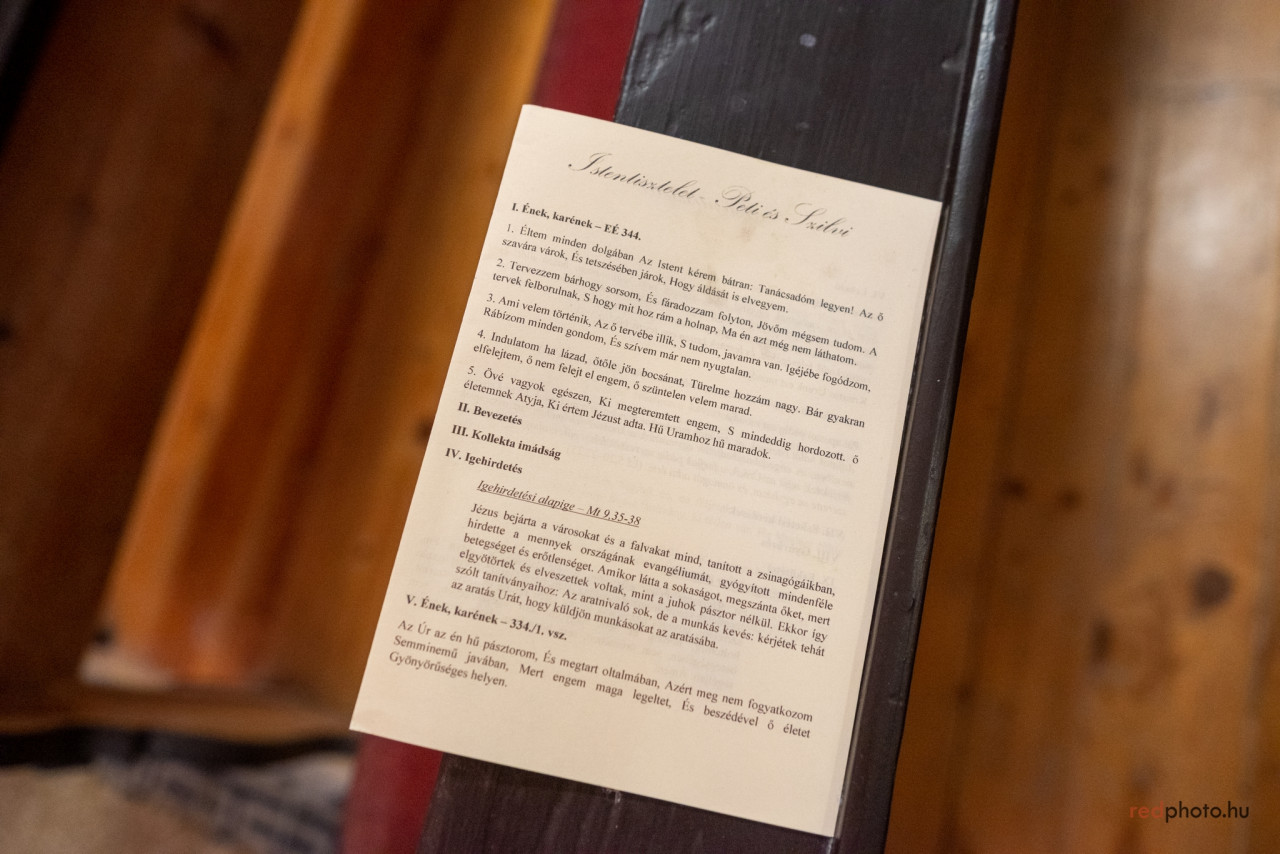 Istentisztelet - Peti és Szilvi
I. Ének, karének – EÉ 344.
1. Éltem minden dolgában Az Istent kérem bátran: Tanácsadóm legyen! Az ő
szavára várok, És tetszésében járok, Hogy áldását is elvegyem.
2. Tervezzem bárhogy sorsom, És fáradozzam folyton, Jövőm mégsem tudom. A
tervek felborulnak, S hogy mit hoz rám a holnap, Ma én azt még nem láthatom.
3. Ami velem történik, Az ő tervébe illik, S tudom, javamra van. Igéjébe fogódzom,
Rábízom minden gondom, És szívem már nem nyugtalan.
4. Indulatom ha lázad, őtőle jön bocsánat, Türelme hozzám nagy. Bár gyakran
elfelejtem, ő nem felejt el engem, ő szüntelen velem marad.
5. Övé vagyok egészen, Ki megteremtett engem, S mindeddig hordozott. ő
életemnek Atyja, Ki értem Jézust adta. Hű Uramhoz hű maradok.
II. Bevezetés
III. Kollekta imádság
IV. Igehirdetés
Igehirdetési alapige – Mt 9,35-38
Jézus bejárta a városokat és a falvakat mind, tanított a zsinagógáikban,
hirdette a mennyek országának evangéliumát, gyógyított mindenféle
betegséget és erőtlenséget. Amikor látta a sokaságot, megszánta őket, mert
elgyötörtek és elveszettek voltak, mint a juhok pásztor nélkül. Ekkor így
szólt tanítványaihoz: Az aratnivaló sok, de a munkás kevés: kérjétek tehát
az aratás Urát, hogy küldjön munkásokat az aratásába.
V. Ének, karének – 334./1. vsz.
Az Úr az én hű pásztorom, És megtart oltalmában, Azért meg nem fogyatkozom
Semminemű javában, Mert engem maga legeltet, És beszédével ő életet
Gyönyörűséges helyen.
redphoto.hu